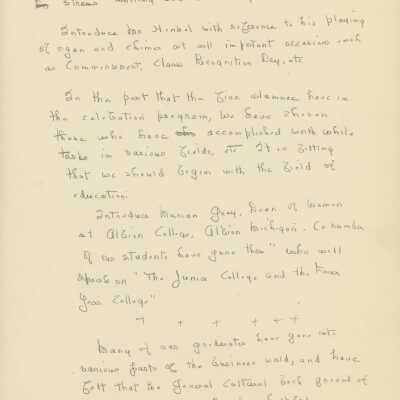 Introduce Mr Hinkel with reference to his playing
of organ and chimes at all important occasions such
as Commencement, Class Recognition Day, etc
In the part that the fine alumnae have in
the celebration program, we have chosen
those who have accomplished worth while
tasks in various fields, etc It is fitting
that we should begin with the field of
education.
Introduce Marian Gray, Dean of Women
at Albion College, Albion Michigan. (a number
of our students have gone there" who will
speak on "The Junior College and the Four
Year College"
+ + + + +
Many of our graduates have gone into
various parts of the business world, and have
felt that the general cultural back ground of